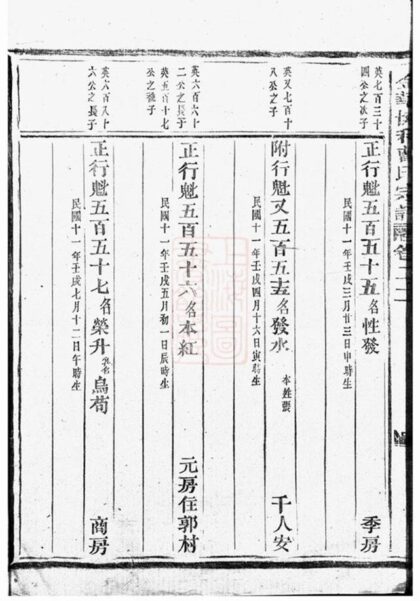 曹氏宗譜
英七百三十
四公之次子
正行魁五百五十五名性發 季房
民國十一年壬戌三月廿三日申時生
英又七百十
八公之子
附行魁又五百五十五名發水 本姓張 千人安
民國十一年壬戌四月十六日寅時生
英六百六十
二公之長子
英五百十七
公之繼子
正行魁五百五十六名本紅 元房住郭村
民國十一年壬戌五月初一日辰時生
英六百八十
六公之長子
正行魁五百五十七名榮升乳名烏苟 商房
民國十一年壬戌七月十二日午時生